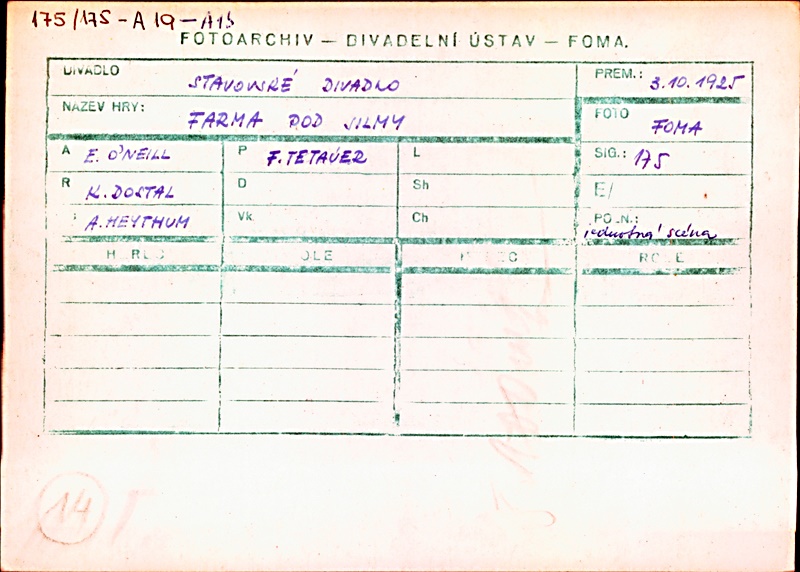 175/175 - A 19 - A13
FOTOARCHIV – DIVADELNÍ ÚSTAV – FOMA.
DIVADLO STAVOVSKÉ DIVADLO PREM.: 3.10.1925
NÁZEV HRY: FARMA POD JILMY FOTO FOMA
A E. O'NEILL P F. TETAUER L SIG.: 175
R K. DOSTAL D Sh E/
A. HEYTHUM Vk. Ch PO .N.: jednotná scéna
HEREC ROLE HEREC ROLE
14